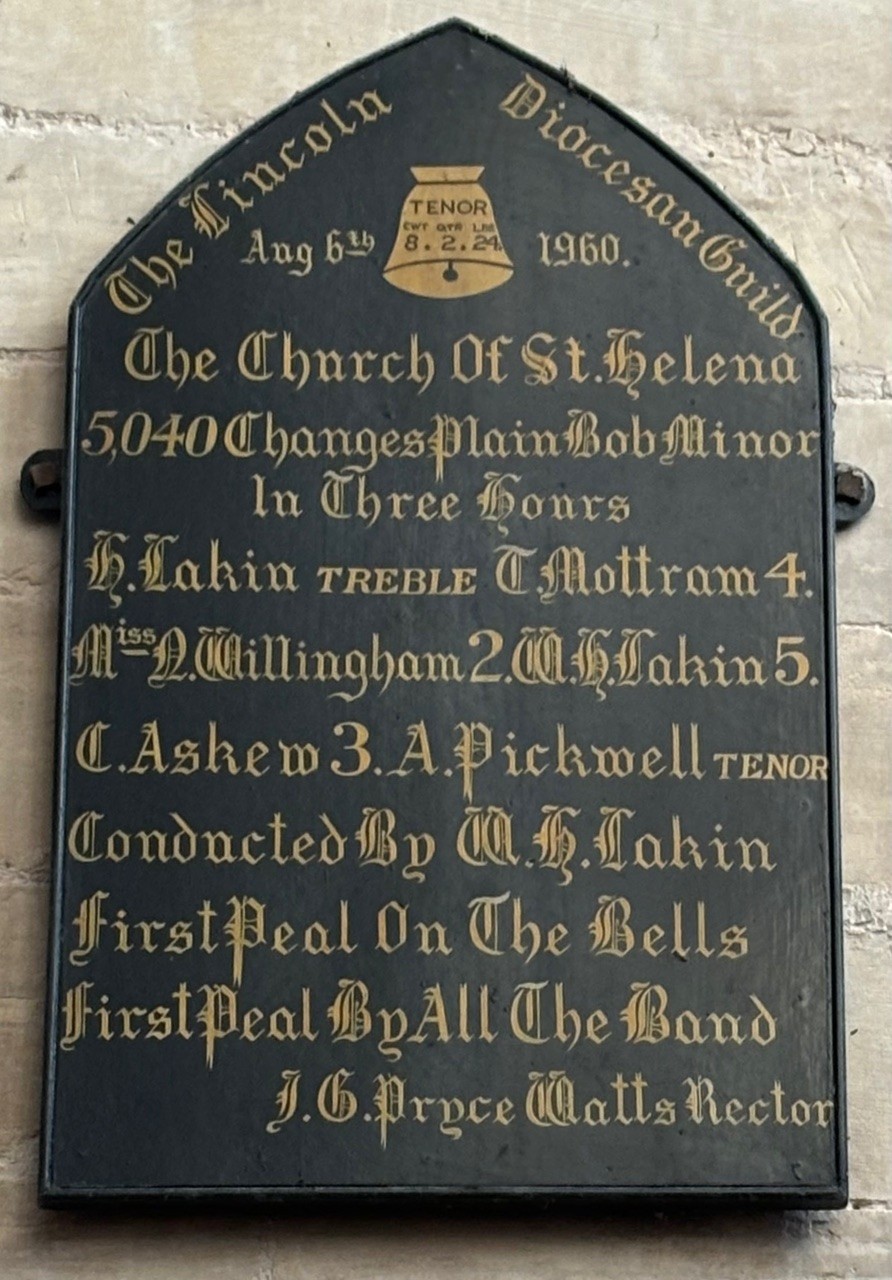 The Lincoln Diocesan Guild
TENOR
CWT QTR LBS
Aug 6th 8.2.24. 1960.
The Church Of St. Helena
5,040 Changes Plain Bob Minor
In Three Hours
H. Lakin TREBLE T. Mottram 4.
Miss N. Willingham 2. W.H. Lakin 5.
C. Askew 3. A. Pickwell TENOR
Conducted By W.H. Lakin
First Peal On The Bells
First Peal By All The Band
J.G. Pryce Watts Rector